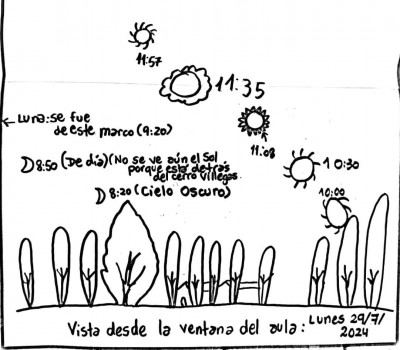 11:57
11:35
← Luna: se fue
de este marco (9:20)
11:08
D 8:50 (De día) (No se ve aún el Sol
porque está detrás
del cerro Villegas
10:30
D 8:20 (Cielo Oscuro)
10:00
Vista desde la ventana del aula: Lunes 29/7/
2024